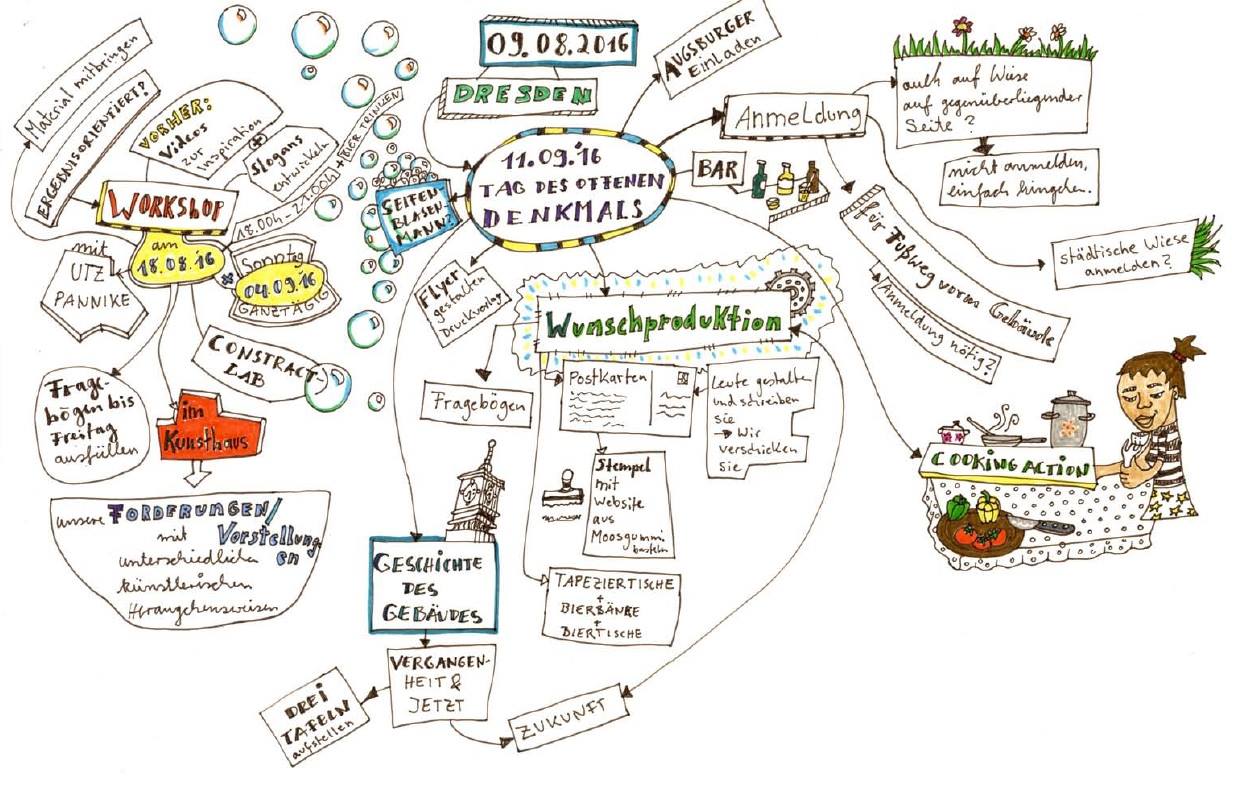 09.08.2016
DRESDEN
11.09.'16
TAG DES OFFENEN
DENKMALS
AUGSBURGER
EinLaden
Anmeldung
auch auf Wiese
auf gegenüberliegender
Seite?
nicht anmelden,
einfach hingehen.
städtische Wiese
anmelden?
für Fußweg vorm Gebäude
Anmeldung nötig?
BAR
COOKING ACTION
SEIFEN
BLASEN
MANN?
Material mitbringen
ERGEBNISORIENTIERT?
VORHER:
Videos
zur
Inspiration
+
Slogans
entwickeln
WORKSHOP
am
18.08.'16
18.00h-21.00h + BIER TRINKEN
*
Sonntag
04.09.'16
GANZTÄGIG
mit
UTZ
PANNIKE
CONSTRACT-
LAB
Frage-
bögen bis
Freitag
ausfüllen
im
Kunsthaus
unsere FORDERUNGEN/
mit Vorstellung
en
unterschiedlichen
künstlerischen
Herangehensweisen
Flyer
gestalten
Druckvorlag
Wunschproduktion
Fragebögen
Postkarten
Leute gestalten
und schreiben
sie
→ Wir
verschicken
sie
Stempel
mit
Website
aus
Moosgummi
basteln
TAPEZIERTISCHE
+
BIERBÄNKE
+
BIERTISCHE
GESCHICHTE
DES
GEBÄUDES
VERGANGEN-
HEIT &
JETZT
DREI
TAFELN
aufstellen
ZUKUNFT